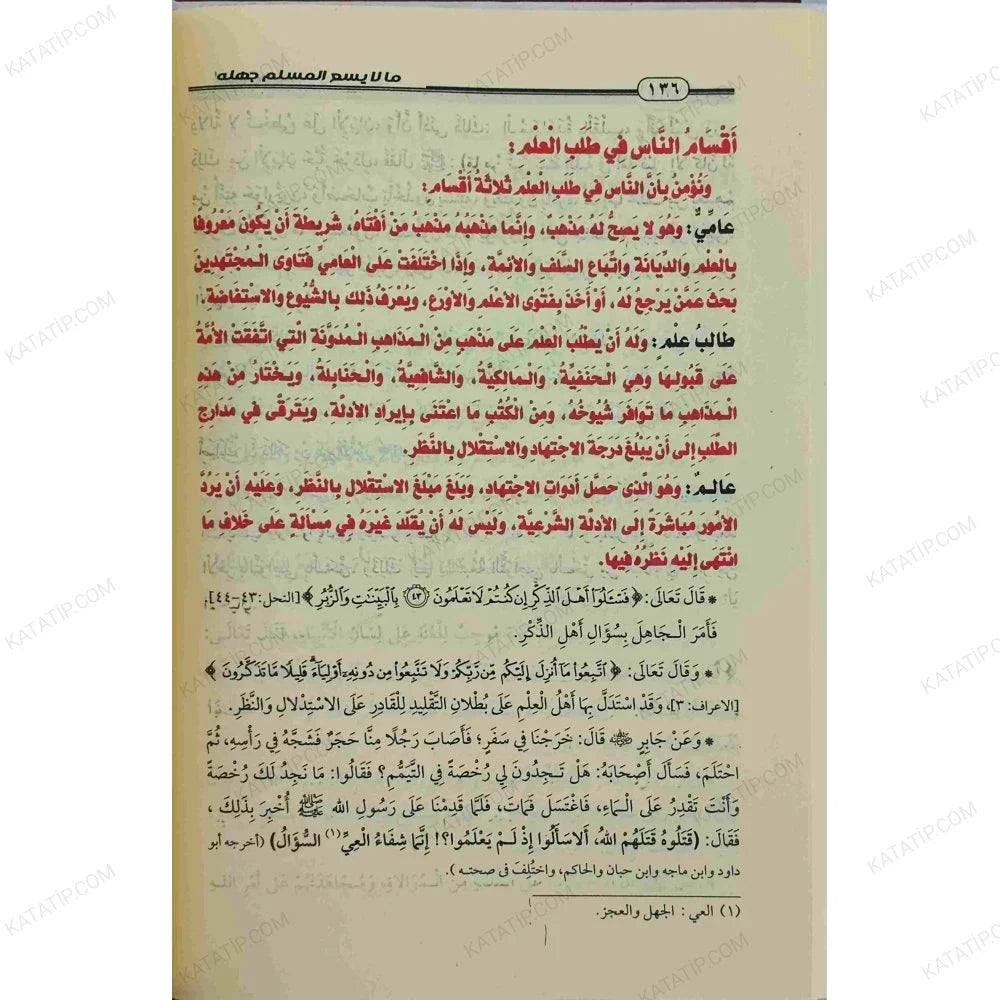 ما لا يسع المسلم جهله
١٣٦
أَقْسَامُ النَّاسِ فِي طَلَبِ الْعِلْمِ:
وَنُؤْمِنُ بِأَنَّ النَّاسَ فِي طَلَبِ الْعِلْمِ ثَلَاثَةُ أَقْسَامٍ:
عَامِّيٌّ: وَهُوَ لَا يَصِحُّ لَهُ مَذْهَبٌ، وَإِنَّمَا مَذْهَبُهُ مَذْهَبُ مَنْ أَفْتَاهُ، شَرِيطَةَ أَنْ يَكُونَ مَعْرُوفًا
بِالْعِلْمِ وَالدِّيَانَةِ وَاتِّبَاعِ السَّلَفِ وَالأَئِمَّةِ، وَإِذَا اخْتَلَفَتْ عَلَى الْعَامِيِّ فَتَاوَى الْمُجْتَهِدِينَ
بَحَثَ عَمَّنْ يَرْجِعُ لَهُ، أَوْ أَخَذَ بِفَتْوَى الأَعْلَمِ وَالأَوْرَعِ، وَيُعْرَفُ ذَلِكَ بِالشُّيُوعِ وَالاسْتِفَاضَةِ.
طَالِبُ عِلْمٍ: وَلَهُ أَنْ يَطْلُبَ الْعِلْمَ عَلَى مَذْهَبٍ مِنَ الْمَذَاهِبِ الْمُدَوَّنَةِ الَّتِي اتَّفَقَتْ الأُمَّةُ
عَلَى قَبُولِهَا وَهِيَ الْحَنَفِيَّةُ، وَالْمَالِكِيَّةُ، وَالشَّافِعِيَّةُ، وَالْحَنَابِلَةُ، وَيَخْتَارُ مِنْ هَذِهِ
الْمَذَاهِبِ مَا تَوَافَرَ شُيُوخُهُ، وَمِنَ الْكُتُبِ مَا اعْتَنَى بِإِيرَادِ الأَدِلَّةِ، وَيَتَرَقَّى فِي مَدَارِجِ
الطَّلَبِ إِلَى أَنْ يَبْلُغَ دَرَجَةَ الاجْتِهَادِ وَالاسْتِقْلَالِ بِالنَّظَرِ.
عَالِمٌ: وَهُوَ الَّذِي حَصَّلَ أَدَوَاتِ الاجْتِهَادِ، وَبَلَغَ مَبْلَغَ الاسْتِقْلَالِ بِالنَّظَرِ، وَعَلَيْهِ أَنْ يَرُدَّ
الأُمُورَ مُبَاشَرَةً إِلَى الأَدِلَّةِ الشَّرْعِيَّةِ، وَلَيْسَ لَهُ أَنْ يُقَلِّدَ غَيْرَهُ فِي مَسْأَلَةٍ عَلَى خِلَافِ مَا
انْتَهَى إِلَيْهِ نَظَرُهُ فِيهَا.
* قَالَ تَعَالَى: ﴿فَسْـَٔلُوٓا۟ أَهْلَ ٱلذِّكْرِ إِن كُنتُمْ لَا تَعْلَمُونَ ٤٣ بِٱلْبَيِّنَٰتِ وَٱلزُّبُرِ﴾ [النحل: ٤٣-٤٤]،
فَأَمَرَ الْـجَاهِلَ بِسُؤَالِ أَهْلِ الذِّكْرِ.
* وَقَالَ تَعَالَى: ﴿ٱتَّبِعُوا۟ مَآ أُنزِلَ إِلَيْكُم مِّن رَّبِّكُمْ وَلَا تَتَّبِعُوا۟ مِن دُونِهِۦٓ أَوْلِيَآءَ ۗ قَلِيلًا مَّا تَذَكَّرُونَ﴾
[الاعراف: ٣]، وَقَدْ اسْتَدَلَّ بِهَا أَهْلُ الْعِلْمِ عَلَى بُطْلَانِ التَّقْلِيدِ لِلْقَادِرِ عَلَى الاسْتِدْلَالِ وَالنَّظَرِ.
* وَعَنْ جَابِرٍ ﵁ قَالَ: خَرَجْنَا فِي سَفَرٍ؛ فَأَصَابَ رَجُلًا مِنَّا حَجَرٌ فَشَجَّهُ فِي رَأْسِهِ، ثُمَّ
احْتَلَمَ، فَسَأَلَ أَصْحَابَهُ: هَلْ تَـجِدُونَ لِي رُخْصَةً فِي التَّيَمُّمِ؟ فَقَالُوا: مَا نَجِدُ لَكَ رُخْصَةً
وَأَنْتَ تَقْدِرُ عَلَى الْـمَاءِ، فَاغْتَسَلَ فَمَاتَ، فَلَمَّا قَدِمْنَا عَلَى رَسُولِ الله ﷺ أُخْبِرَ بِذَلِكَ،
فَقَالَ: (قَتَلُوهُ قَتَلَهُمْ اللهُ، أَلَا سَأَلُوا إِذْ لَـمْ يَعْلَمُوا؟! إِنَّمَا شِفَاءُ الْعِيِّ(١) السُّؤَالُ) (أخرجه أبو
داود وابن ماجه وابن حبان والحاكم، واختُلِفَ فى صحته).
(١) العي: الجهل والعجز.
KATATİP.COM